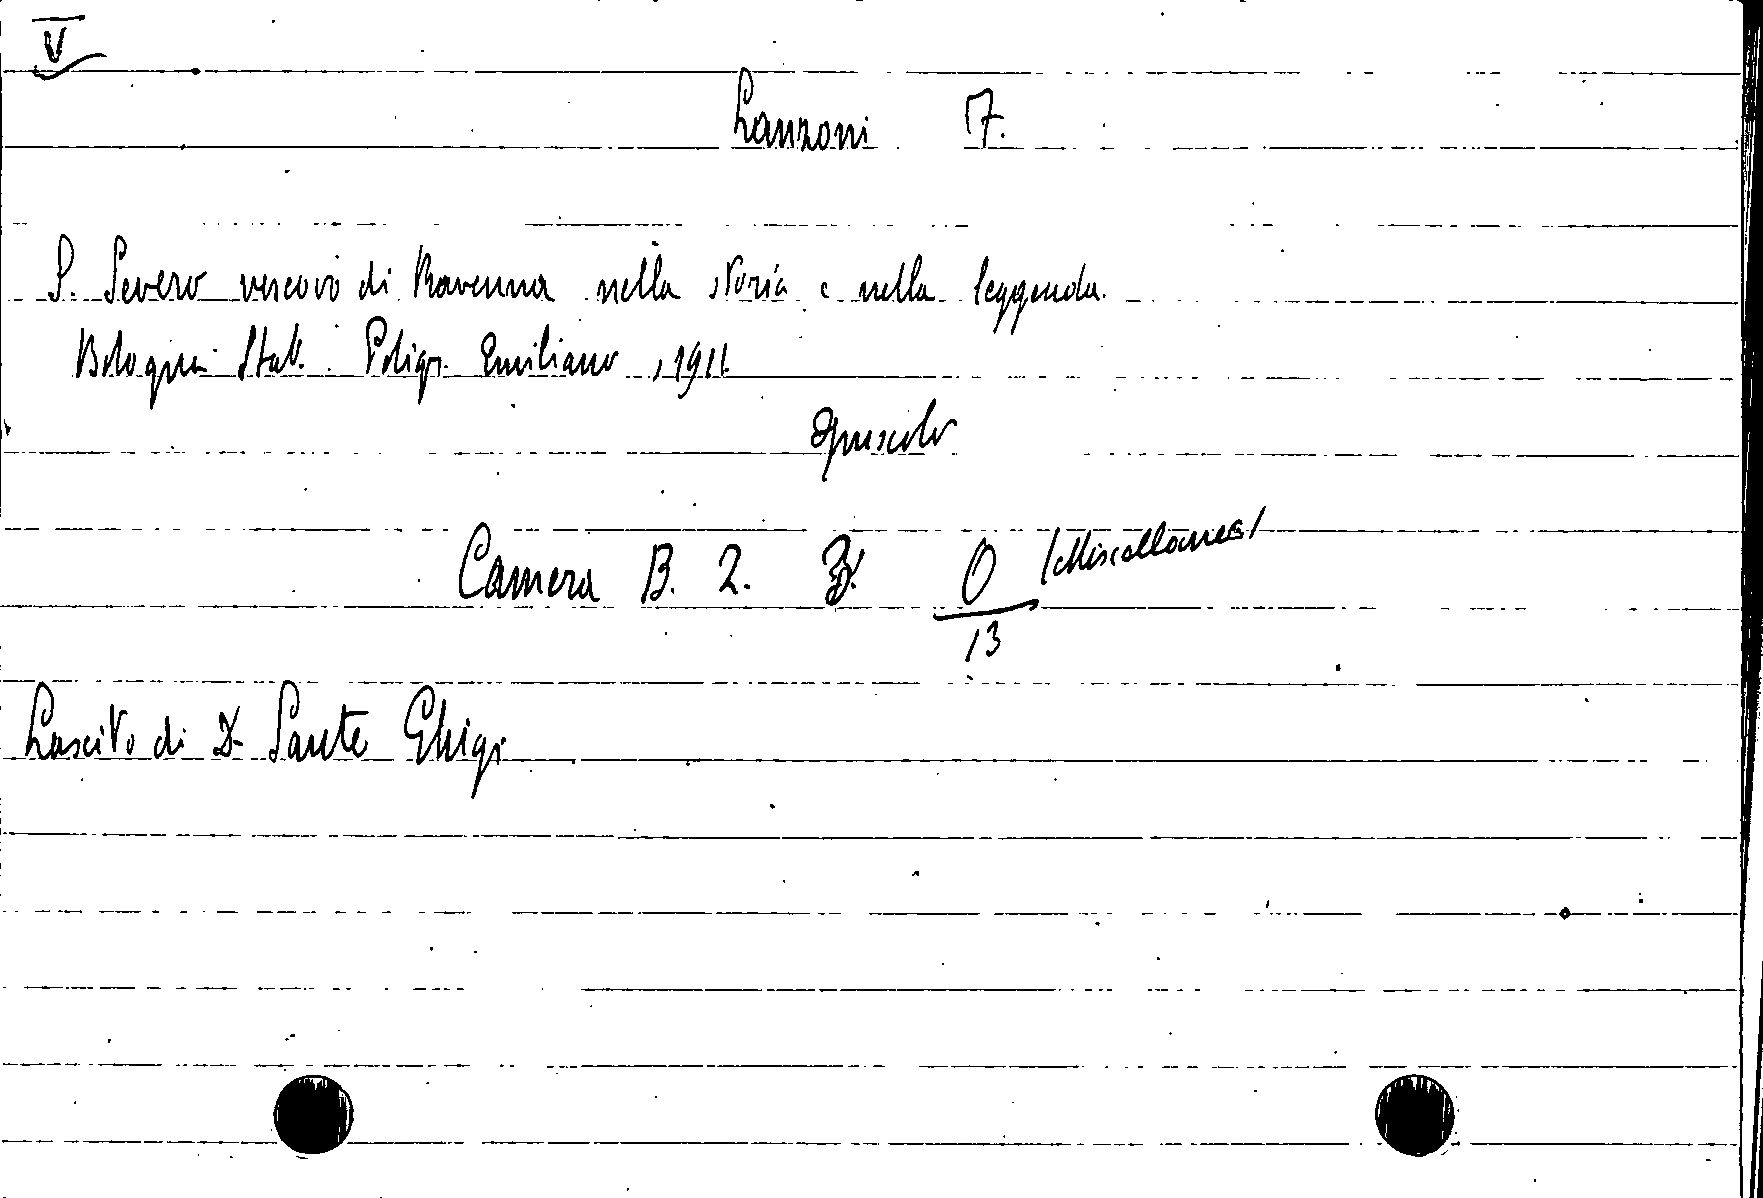 V
Lanzoni F.
S. Severo vescovo di Ravenna nella storia e nella leggenda.
Bologna Stab. Poligr. Emiliano, 1911
Opuscolo
Camera B. 2. O /Miscellanea/
13
Lascito di D. Sante Ghigi